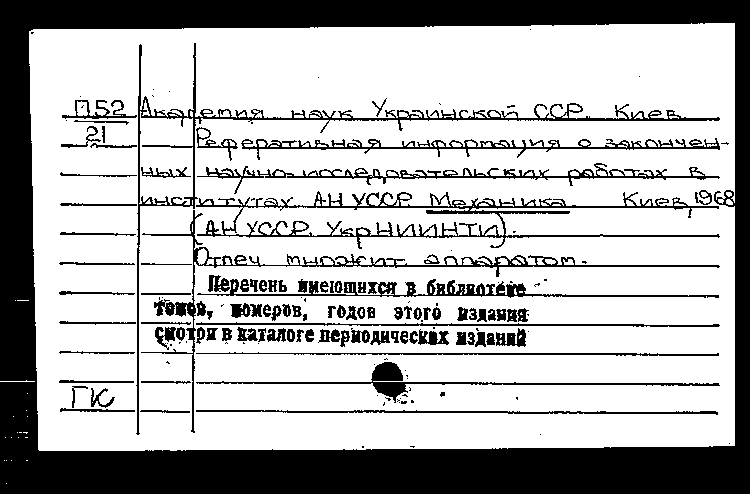 П52 Академия наук Украинской ССР. Киев.
21 Реферативная информация о закончен-
ных научно-исследовательских работах в
институтах АН УССР. Механика. Киев, 1968
(АН УССР. УкрНИИНТИ).
Отпеч. множит. аппаратом.
Перечень имеющихся в библиотеке
томов, номеров, годов этого издания
смотри в каталоге периодических изданий
ГК